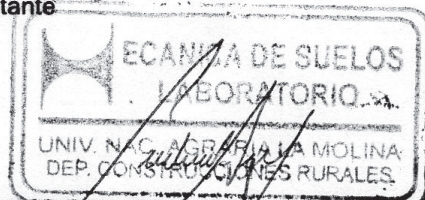 tante
ECANICA DE SUELOS
LABORATORIO
UNIV. NAC. AGRARIA LA MOLINA
DEP. CONSTRUCCIONES RURALES